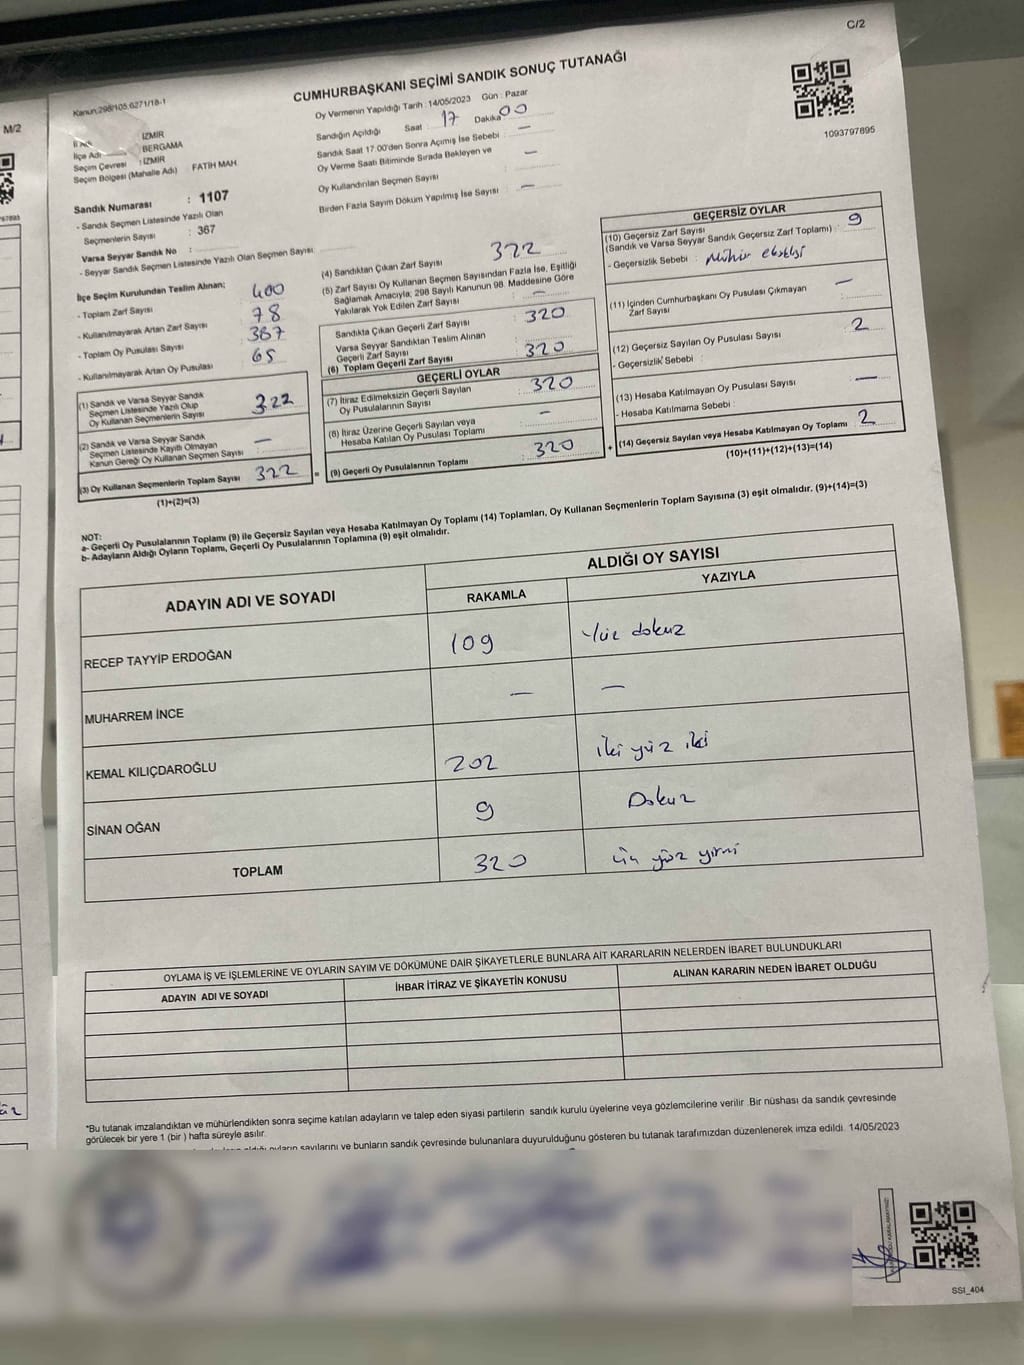 C/2
M/2
CUMHURBAŞKANI SEÇİMİ SANDIK SONUÇ TUTANAĞI
Kanun:298/105,6271/18-1
1093797895
Oy Vermenin Yapıldığı Tarih : 14/05/2023 Gün : Pazar
Sandığın Açıldığı Saat : 17 Dakika 00
Sandık Saat 17:00'den Sonra Açımış İse Sebebi : —
Oy Verme Saati Bitiminde Sırada Bekleyen ve
Oy Kullandırılan Seçmen Sayısı : —
Birden Fazla Sayım Döküm Yapılmış İse Sayısı : —
İl Adı : İZMİR
İlçe Adı : BERGAMA
Seçim Çevresi : İZMİR
Seçim Bölgesi (Mahalle Adı) FATİH MAH
Sandık Numarası : 1107
- Sandık Seçmen Listesinde Yazılı Olan
Seçmenlerin Sayısı : 367
Varsa Seyyar Sandık No :
- Seyyar Sandık Seçmen Listesinde Yazılı Olan Seçmen Sayısı :
İlçe Seçim Kurulundan Teslim Alınan;
- Toplam Zarf Sayısı : 400
- Kullanılmayarak Artan Zarf Sayısı : 78
- Toplam Oy Pusulası Sayısı : 387
- Kullanılmayarak Artan Oy Pusulası : 65
(1) Sandık ve Varsa Seyyar Sandık
Seçmen Listesinde Yazılı Olup
Oy Kullanan Seçmenlerin Sayısı : 322
(2) Sandık ve Varsa Seyyar Sandık
Seçmen Listesinde Kayıtlı Olmayan
Kanun Gereği Oy Kullanan Seçmen Sayısı : —
(3) Oy Kullanan Seçmenlerin Toplam Sayısı : 322
(1)+(2)=(3)
(4) Sandıktan Çıkan Zarf Sayısı : 322
(5) Zarf Sayısı Oy Kullanan Seçmen Sayısından Fazla İse, Eşitliği
Sağlamak Amacıyla; 298 Sayılı Kanunun 98. Maddesine Göre
Yakılarak Yok Edilen Zarf Sayısı : —
Sandıkta Çıkan Geçerli Zarf Sayısı : 320
Varsa Seyyar Sandıktan Teslim Alınan
Geçerli Zarf Sayısı :
(6) Toplam Geçerli Zarf Sayısı : 320
GEÇERLİ OYLAR
(7) İtiraz Edilmeksizin Geçerli Sayılan
Oy Pusulalarının Sayısı : 320
(8) İtiraz Üzerine Geçerli Sayılan veya
Hesaba Katılan Oy Pusulası Toplamı : —
= (9) Geçerli Oy Pusulalarının Toplamı : 320
GEÇERSİZ OYLAR
(10) Geçersiz Zarf Sayısı : 9
(Sandık ve Varsa Seyyar Sandık Geçersiz Zarf Toplamı)
- Geçersizlik Sebebi : Mühür eksikliği
(11) İçinden Cumhurbaşkanı Oy Pusulası Çıkmayan
Zarf Sayısı : —
(12) Geçersiz Sayılan Oy Pusulası Sayısı : 2
- Geçersizlik Sebebi :
(13) Hesaba Katılmayan Oy Pusulası Sayısı : —
- Hesaba Katılmama Sebebi :
+ (14) Geçersiz Sayılan veya Hesaba Katılmayan Oy Toplamı : 2
(10)+(11)+(12)+(13)=(14)
NOT:
a- Geçerli Oy Pusulalarının Toplamı (9) ile Geçersiz Sayılan veya Hesaba Katılmayan Oy Toplamı (14) Toplamları, Oy Kullanan Seçmenlerin Toplam Sayısına (3) eşit olmalıdır. (9)+(14)=(3)
b- Adayların Aldığı Oyların Toplamı, Geçerli Oy Pusulalarının Toplamına (9) eşit olmalıdır.
ADAYIN ADI VE SOYADI
ALDIĞI OY SAYISI
RAKAMLA YAZIYLA
RECEP TAYYİP ERDOĞAN 109 Yüz dokuz
MUHARREM İNCE — —
KEMAL KILIÇDAROĞLU 202 iki yüz iki
SİNAN OĞAN 9 Dokuz
TOPLAM 320 üç yüz yirmi
OYLAMA İŞ VE İŞLEMLERİNE VE OYLARIN SAYIM VE DÖKÜMÜNE DAİR ŞİKAYETLERLE BUNLARA AİT KARARLARIN NELERDEN İBARET BULUNDUKLARI
ADAYIN ADI VE SOYADI İHBAR İTİRAZ VE ŞİKAYETİN KONUSU ALINAN KARARIN NEDEN İBARET OLDUĞU
*Bu tutanak imzalandıktan ve mühürlendikten sonra seçime katılan adayların ve talep eden siyasi partilerin sandık kurulu üyelerine veya gözlemcilerine verilir .Bir nüshası da sandık çevresinde
görülecek bir yere 1 (bir ) hafta süreyle asılır.
oyların sayılarını ve bunların sandık çevresinde bulunanlara duyurulduğunu gösteren bu tutanak tarafımızdan düzenlenerek imza edildi. 14/05/2023
SSI_404